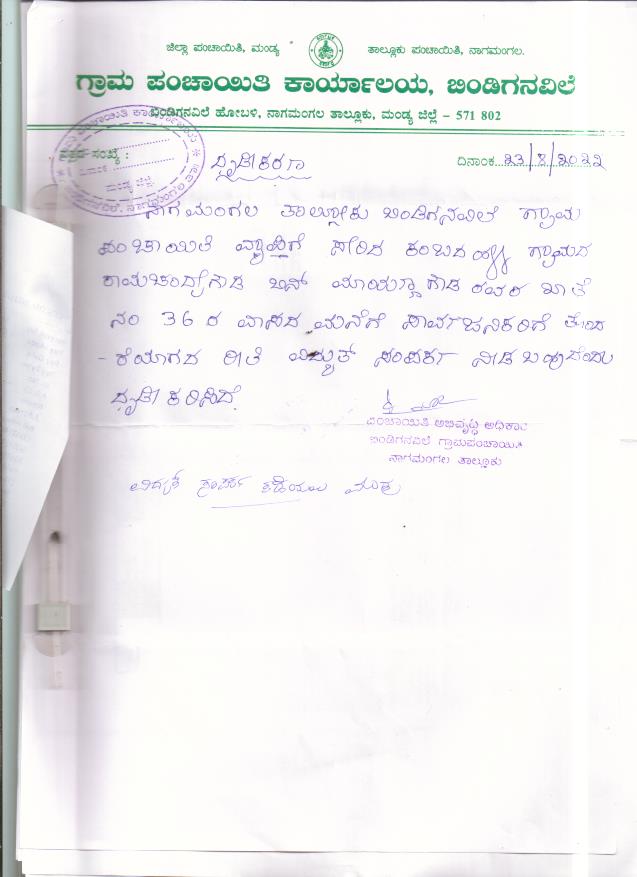 ಜಿಲ್ಲಾ ಪಂಚಾಯಿತಿ, ಮಂಡ್ಯ ತಾಲ್ಲೂಕು ಪಂಚಾಯಿತಿ, ನಾಗಮಂಗಲ.
ಗ್ರಾಮ ಪಂಚಾಯಿತಿ ಕಾರ್ಯಾಲಯ, ಬಿಂಡಿಗನವಿಲೆ
ಬಿಂಡಿಗನವಿಲೆ ಹೋಬಳಿ, ನಾಗಮಂಗಲ ತಾಲ್ಲೂಕು, ಮಂಡ್ಯ ಜಿಲ್ಲೆ – 571 802
ಪತ್ರದ ಸಂಖ್ಯೆ : ದಿನಾಂಕ...೨೩/೪/೨೦೨೨
ಧೃಡೀಕರಣ
ನಾಗಮಂಗಲ ತಾಲ್ಲೋಕು ಬಿಂಡಿಗನವಿಲೆ ಗ್ರಾಮ
ಪಂಚಾಯಿತಿ ವ್ಯಾಪ್ತಿಗೆ ಸೇರಿದ ಕಂಬದಹಳ್ಳಿ ಗ್ರಾಮದ
ರಾಮಚಂದ್ರೇಗೌಡ ಬಿನ್ ಮಾಯಣ್ಣಗೌಡ ರವರ ಖಾತೆ
ನಂ 36 ರ ವಾಸದ ಮನೆಗೆ ಸಾರ್ವಜನಿಕರಿಗೆ ತೊಂದ
- ರೆಯಾಗದ ರೀತಿ ವಿದ್ಯುತ್ ಸಂಪರ್ಕ ನೀಡ ಬಹುದೆಂದು
ಧೃಡೀಕರಿಸಿದೆ.
ಪಂಚಾಯಿತಿ ಅಭಿವೃದ್ಧಿ ಅಧಿಕಾರಿ
ಬಿಂಡಿಗನವಿಲೆ ಗ್ರಾಮಪಂಚಾಯಿತಿ
ನಾಗಮಂಗಲ ತಾಲ್ಲೂಕು
ವಿದ್ಯುತ್ ಸಂಪರ್ಕ ಪಡೆಯಲು ಮಾತ್ರ